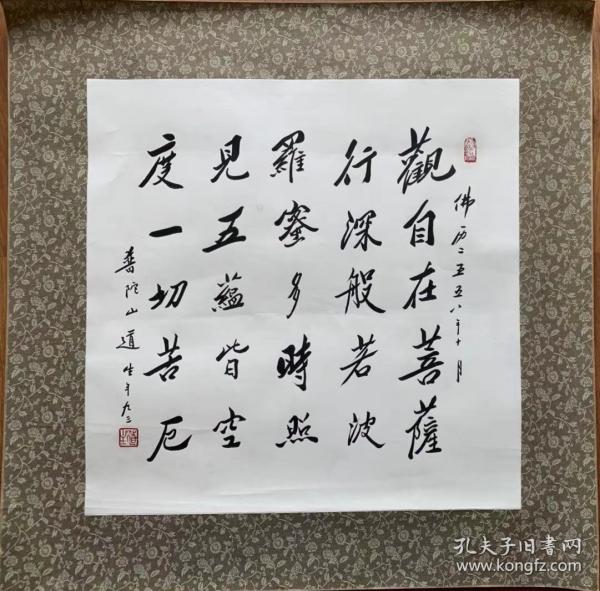 佛历二五五八年十月
觀自在菩薩
行深般若波
羅蜜多時照
見五蘊皆空
度一切苦厄
普陀山道生年九三
孔夫子旧书网
www.kongfz.com